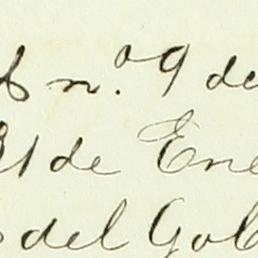 n.º 9 de
31 de Ene
del Gob